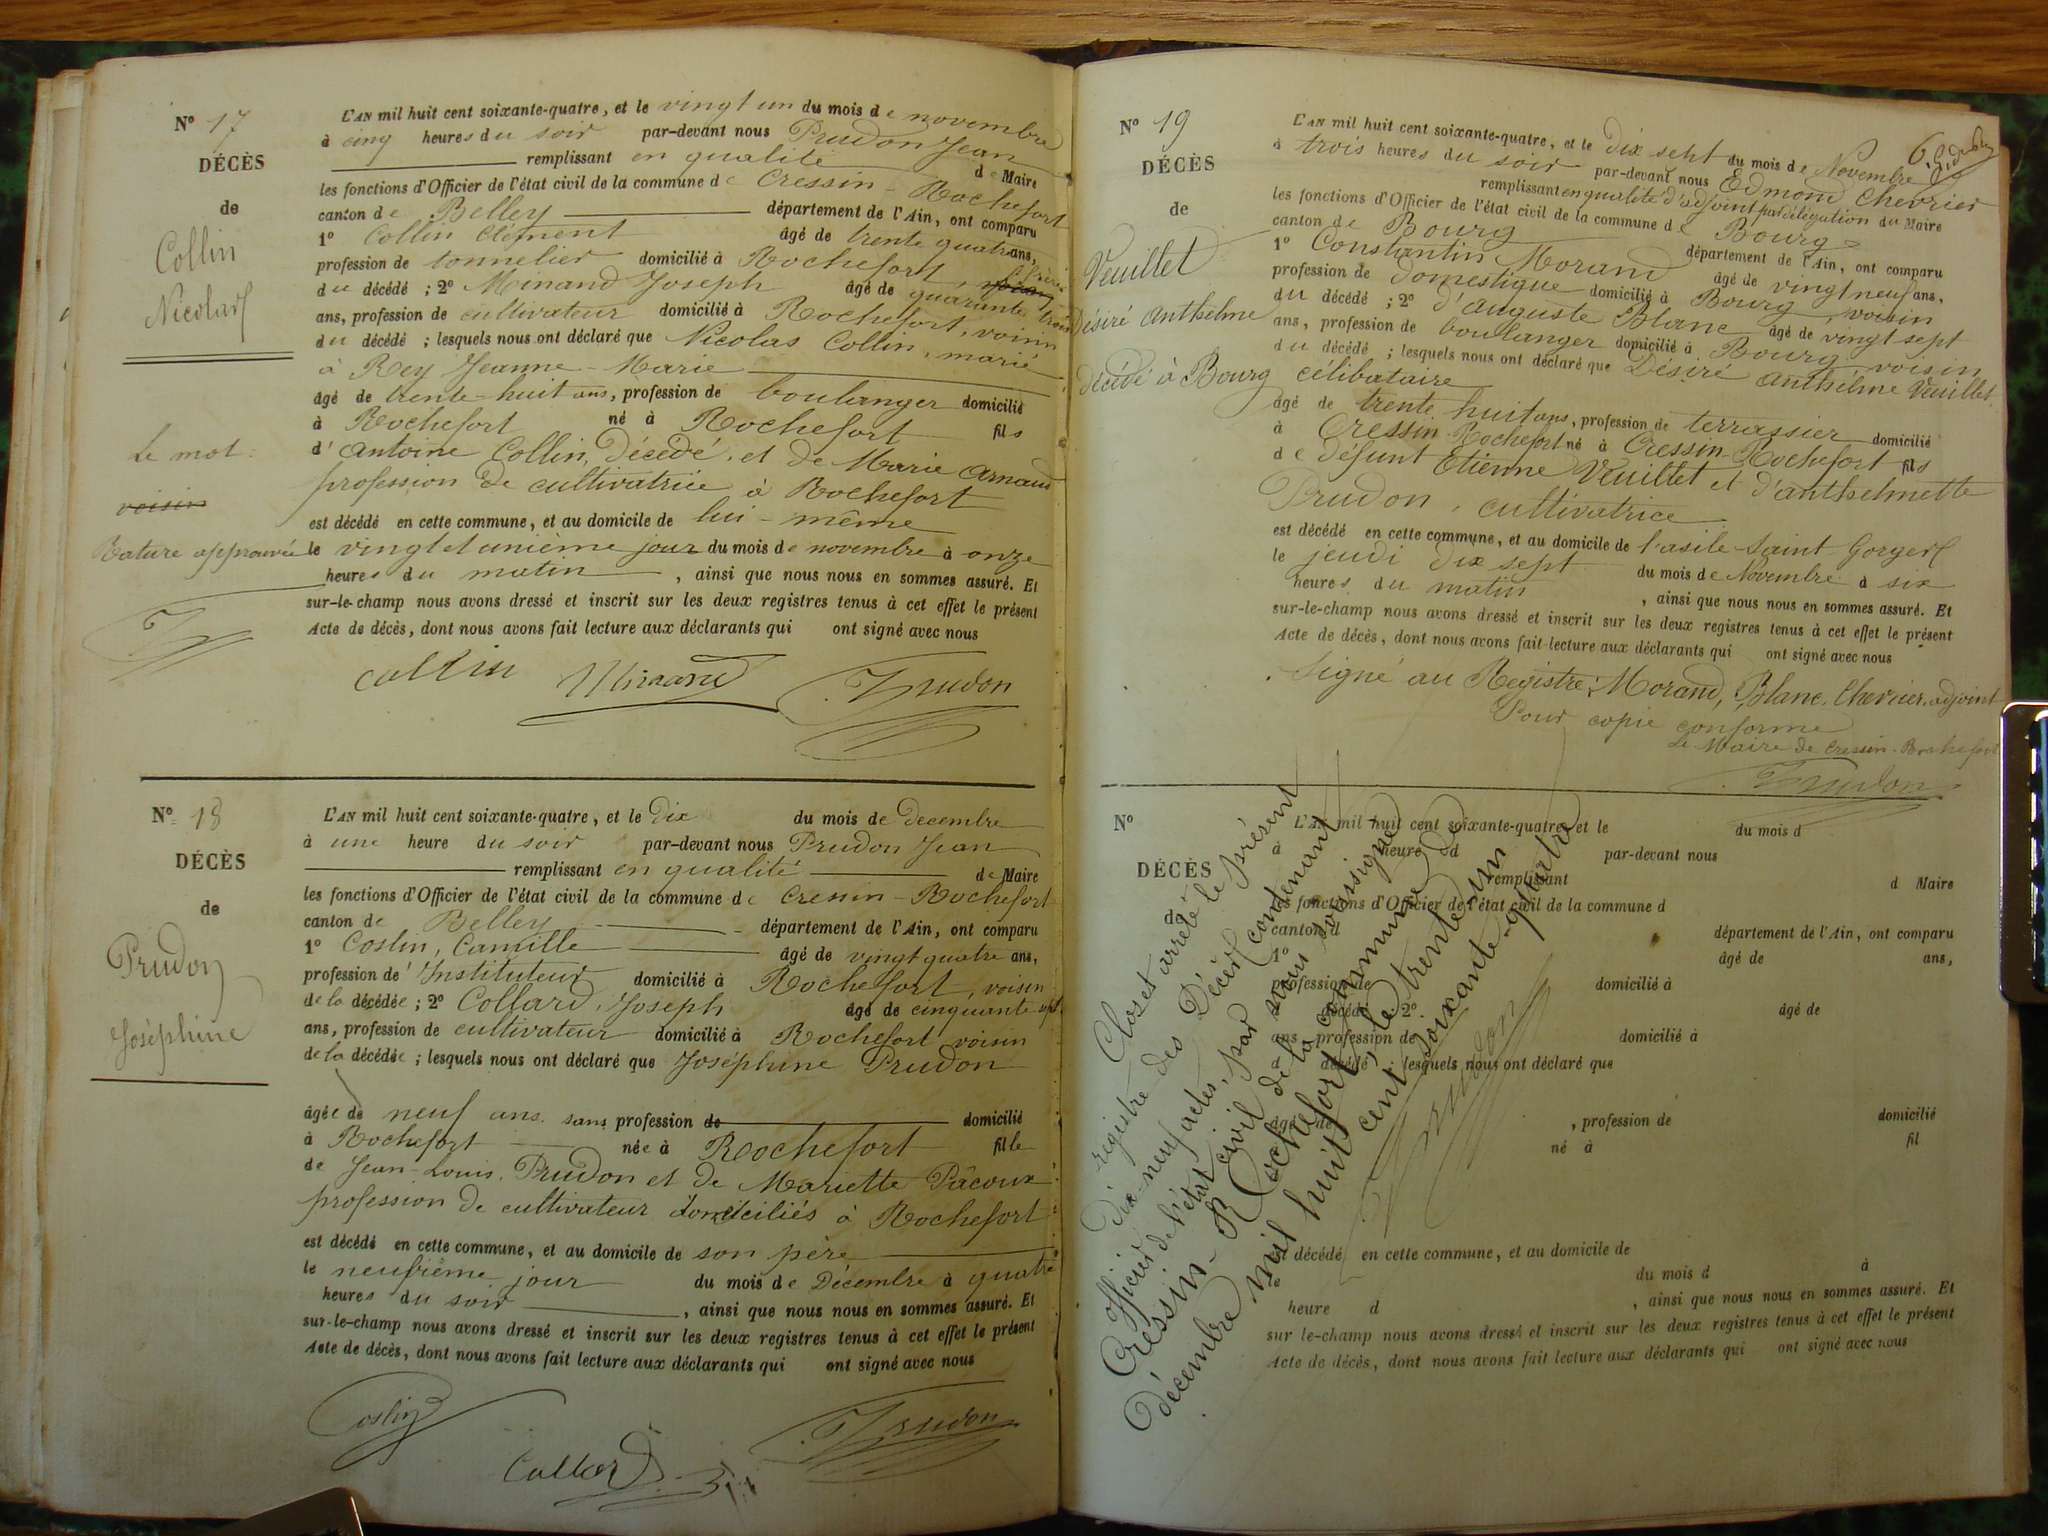 N° 17
DÉCÈS
de
Collin
Nicolas
Le mot:
voisin
Rature approuvée
L'AN mil huit cent soixante-quatre, et le vingt un du mois de novembre
à cinq heures du soir par-devant nous Prudon Jean
remplissant en qualité de Maire
les fonctions d'Officier de l'état civil de la commune de Cressin-Rochefort
canton de Belley département de l'Ain, ont comparu
1° Collin Clément âgé de trente quatre ans,
profession de tonnelier domicilié à Rochefort, frère
du décédé ; 2° Minand Joseph âgé de quarante trois
ans, profession de cultivateur domicilié à Rochefort, voisin
du décédé ; lesquels nous ont déclaré que Nicolas Collin, marié
à Rey Jeanne-Marie
âgé de trente-huit ans, profession de boulanger domicilié
à Rochefort né à Rochefort fils
d'Antoine Collin, Décédé, et de Marie Arnaud
profession de cultivatrice à Rochefort
est décédé en cette commune, et au domicile de lui-même
le vingt et unième jour du mois de novembre à onze
heures du matin, ainsi que nous nous en sommes assuré. Et
sur-le-champ nous avons dressé et inscrit sur les deux registres tenus à cet effet le présent
Acte de décès, dont nous avons fait lecture aux déclarants qui ont signé avec nous
Collin Minand Prudon
N° 18
DÉCÈS
de
Prudon
Joséphine
L'AN mil huit cent soixante-quatre, et le Dix du mois de decembre
à une heure du soir par-devant nous Prudon Jean
remplissant en qualité de Maire
les fonctions d'Officier de l'état civil de la commune de Cressin-Rochefort
canton de Belley département de l'Ain, ont comparu
1° Coslin, Camille âgé de vingt quatre ans,
profession d'Instituteur domicilié à Rochefort, voisin
de la décédée ; 2° Collard, Joseph âgé de cinquante sept
ans, profession de cultivateur domicilié à Rochefort voisin
de la décédée ; lesquels nous ont déclaré que Joséphine Prudon
âgée de neuf ans. sans profession de domicilié
à Rochefort née à Rochefort fille
de Jean-Louis Prudon et de Mariette Pâcoux
profession de cultivateur domiciliés à Rochefort
est décédé en cette commune, et au domicile de son père
le neufième jour du mois de Décembre à quatre
heures du soir, ainsi que nous nous en sommes assuré. Et
sur-le-champ nous avons dressé et inscrit sur les deux registres tenus à cet effet le présent
Acte de décès, dont nous avons fait lecture aux déclarants qui ont signé avec nous
Coslin Collard Prudon
N° 19
DÉCÈS
de
Veuillet
Désiré Anthelme
décédé à Bourg
L'AN mil huit cent soixante-quatre, et le Dix sept du mois de Novembre
à trois heures du soir par-devant nous Edmond Chevrier
remplissant en qualité d'adjoint par délégation du Maire
les fonctions d'Officier de l'état civil de la commune de Bourg
canton de Bourg département de l'Ain, ont comparu
1° Constantin Morand âgé de vingt neuf ans,
profession de domestique domicilié à Bourg, voisin
du décédé ; 2° d'auguste Blanc âgé de vingt sept
ans, profession de boulanger domicilié à Bourg voisin
du décédé ; lesquels nous ont déclaré que Désiré Anthelme Veuillet
célibataire
âgé de trente huit ans, profession de terrassier domicilié
à Cressin-Rochefort né à Cressin-Rochefort fils
de défunt Etienne Veuillet et d'anthelmette
Prudon, cultivatrice
est décédé en cette commune, et au domicile de l'asile Saint Gorges
le jeudi dix sept du mois de Novembre à six
heures du matin, ainsi que nous nous en sommes assuré. Et
sur-le-champ nous avons dressé et inscrit sur les deux registres tenus à cet effet le présent
Acte de décès, dont nous avons fait lecture aux déclarants qui ont signé avec nous
Signé au Registre: Morand, Blanc, Chevrier, adjoint
Pour copie conforme
Le Maire de Cressin-Rochefort
Prudon
N°
DÉCÈS
de
L'AN mil huit cent soixante-quatre, et le du mois d
à heure d par-devant nous
remplissant d Maire
les fonctions d'Officier de l'état civil de la commune d
canton d département de l'Ain, ont comparu
1° âgé de ans,
profession de domicilié à
décédé ; 2° âgé de
ans, profession de domicilié à
d décédé ; lesquels nous ont déclaré que
âgé de , profession de domicilié
né à fil
est décédé en cette commune, et au domicile de
le du mois d à
heure d , ainsi que nous nous en sommes assuré. Et
sur le-champ nous avons dressé et inscrit sur les deux registres tenus à cet effet le présent
Acte de décès, dont nous avons fait lecture aux déclarants qui ont signé avec nous
Clos et arrêté le présent
registre des Décès contenant
dix-neuf actes, par nous soussigné
officier de l'état civil de la commune de
Cressin-Rochefort, le trente un
décembre mil huit cent soixante-quatre
Prudon